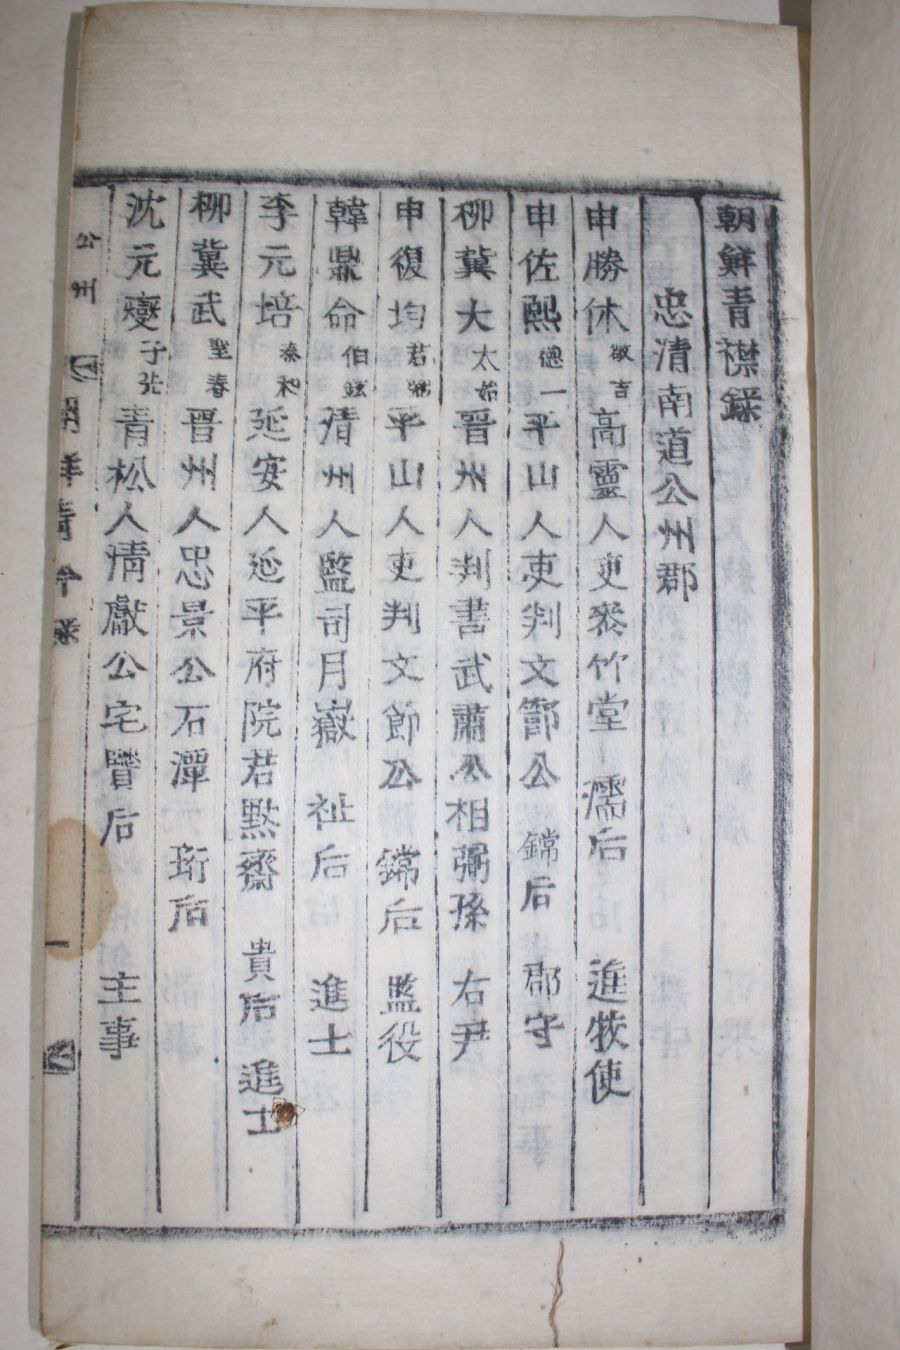 朝鮮青襟錄
忠清南道公州郡
申勝休 敬吉 高靈人吏參竹堂 濡后 進牧使
申佐熙 德一 平山人吏判文節公 鏛后 郡守
柳冀大 太始 晋州人判書武肅公珩弼孫 右尹
申復均 君 平山人吏判文節公 鏛后 監役
韓鼎命 伯鉉 清州人監司月嶽 祉后 進士
李元培 泰和 延安人延平府院君默齋 貴后 進士
柳冀武 聖春 晋州人忠景公石潭 珩后
沈元燮 子 青松人清獻公宅賢后 主事
公州 朝鮮青衿錄 一